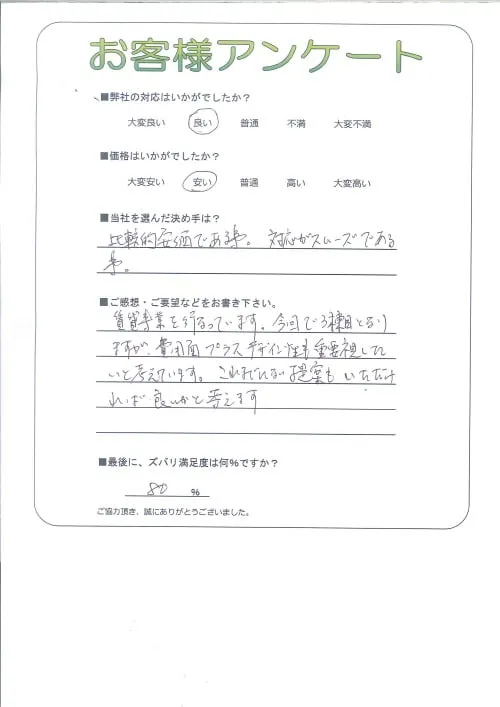 お客様アンケート
■弊社の対応はいかがでしたか？
大変良い 良い 普通 不満 大変不満
■価格はいかがでしたか？
大変安い 安い 普通 高い 大変高い
■当社を選んだ決め手は？
比較的安価である事。対応がスムーズである
事。
■ご感想・ご要望などをお書き下さい。
賃貸事業を行なっています。今回で3棟目となり
ますが、費用面プラスデザイン性も重要視した
いと考えています。これまでにない提案もいただけ
れば良いかと考えます
■最後に、ズバリ満足度は何%ですか？
80 %
ご協力頂き、誠にありがとうございました。